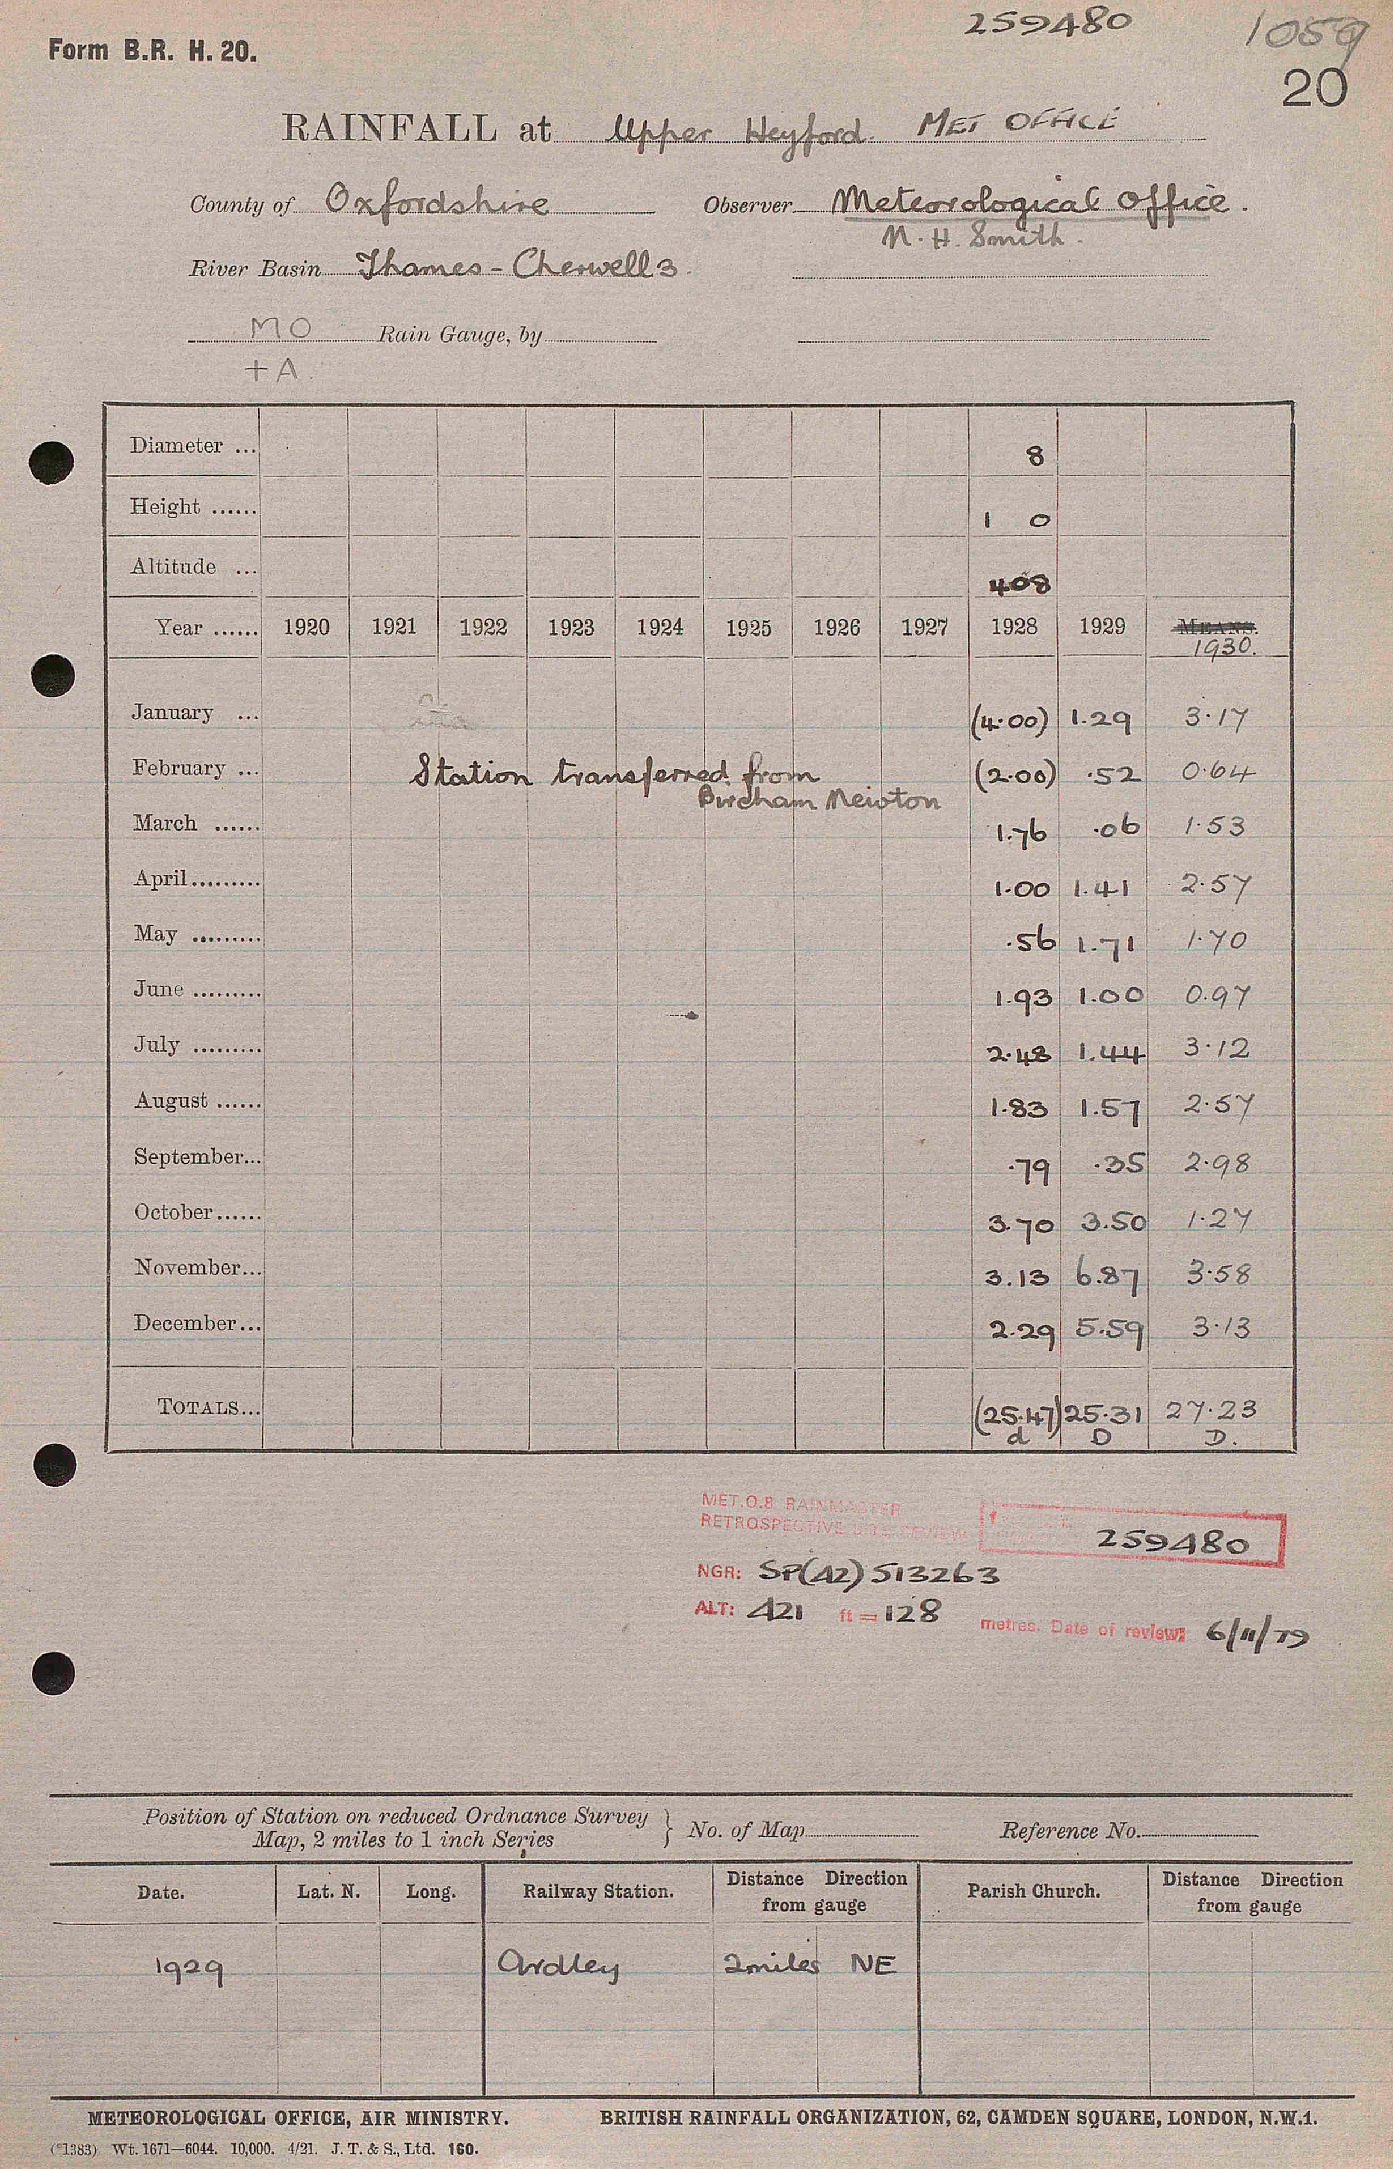 259480
1059
Form B.R. H. 20.
20
RAINFALL at Upper Heyford. MET OFFICE
County of Oxfordshire Observer Meteorological Office.
N. H. Smith.
River Basin Thames - Cherwell 3.
MO Rain Gauge, by
+ A.
Diameter ... 8
Height ...... 1 0
Altitude ... 408
Year ...... 1920 1921 1922 1923 1924 1925 1926 1927 1928 1929 MEANS.
1930.
January ... (4.00) 1.29 3.17
February ... Station transferred from (2.00) .52 0.64
Bircham Newton
March ...... 1.76 .06 1.53
April......... 1.00 1.41 2.57
May ......... .56 1.71 1.70
June ......... 1.93 1.00 0.97
July ......... 2.48 1.44 3.12
August ...... 1.83 1.57 2.57
September... .79 .35 2.98
October...... 3.70 3.50 1.27
November... 3.13 6.87 3.58
December... 2.29 5.59 3.13
TOTALS... (25.47) 25.31 27.23
d D D.
MET.O.8 RAINMASTER
RETROSPECTIVE SITE REVIEW
259480
NGR: SP(42) 513263
ALT: 421 ft = 128 metres. Date of review: 6/11/79
Position of Station on reduced Ordnance Survey
Map, 2 miles to 1 inch Series } No. of Map Reference No.
Date. Lat. N. Long. Railway Station. Distance Direction from gauge Parish Church. Distance Direction from gauge
1929 Ardley 2 miles NE
METEOROLOGICAL OFFICE, AIR MINISTRY. BRITISH RAINFALL ORGANIZATION, 62, CAMDEN SQUARE, LONDON, N.W.1.
(*1383) Wt. 1671—6044. 10,000. 4/21. J. T. & S., Ltd. 160.